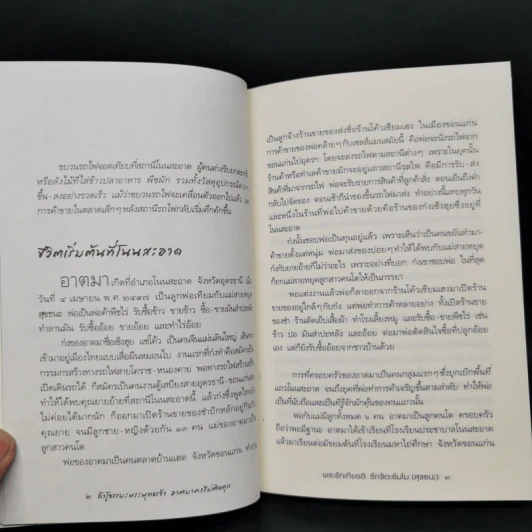 ขบวนรถไฟจอดเทียบที่สถานีโนนสะอาด ผู้คนต่างรีบ
หรือลังไม้ที่ใส่ข้าวปลาอาหาร พืชผัก รวมทั้งวัสดุอุปกรณ์
ขึ้น-ลงอย่างรวดเร็ว แม้ว่าขบวนรถไฟจะเคลื่อนตัวออกไปแล้ว
การค้าขายในตลาดเล็กๆ หลังสถานีรถไฟกลับเริ่มคึกคักขึ้น
ชีวิตเริ่มต้นที่โนนสะอาด
อาตมา เกิดที่อำเภอโนนสะอาด จังหวัดอุดรธานี เมื่อ
วันที่ ๔ เมษายน พ.ศ. เป็นลูกพ่อเทียมกับแม่
สุขชนะ พ่อเป็นพ่อค้าพืชไร่ รับซื้อข้าว ขายข้าว ซื้อ-ขายมันสำปะ
ทำลานมัน รับซื้ออ้อย ขายอ้อย และทำไร่อ้อย
ก๋งของอาตมาชื่อเซ็งฮุย แซ่โค้ว เป็นคนจีนแผ่นดินใหญ่
เข้ามาอยู่เมืองไทยแบบเสื่อผืนหมอนใบ งานแรกที่ก๋งทำคือสมัครเป็น
กรรมกรสร้างทางรถไฟสายโคราช-หนองคาย พอทางรถไฟสร้างเสร็จ
เปิดเดินรถได้ ก็สมัครเป็นคนงานตู้เสบียงสายอุดรธานี-ขอนแก่น
ทำให้ได้พบคุณยายย้ายที่สถานีโนนสะอาดนี้ แล้วก๋งซึ่งพูดไทย
ไม่ค่อยได้มากนัก ก็ออกมาเปิดร้านขายของชำปักหลักอยู่กิน
คุณยาย จนมีลูกชาย-หญิงด้วยกัน ๑๓ คน แม่ของอาตมาเป็น
ลูกสาวคนโต
พ่อของอาตมาเป็นคนตลาดบ้านแฮด จังหวัดขอนแก่น
๒
เป็นลูกจ้างร้านขายของส่งชื่อร้านโค้วเซียมเฮง ในเมืองขอนแก่น
การค้าขายของพ่อคล้ายๆ กับเซลส์แมนสมัยนี้ คือพ่อจะนั่งรถไฟจาก
ขอนแก่นไปอุดรฯ โดยจะลงรถไฟตามสถานีต่างๆ เพราะในยุคนั้น
ร้านค้าหรือทำเลค้าขายมักจะอยู่แถวสถานีรถไฟ คือมีการรับ-ส่ง
สินค้าที่มาจากรถไฟ พ่อจะรับรายการสินค้าที่ลูกค้าสั่ง ตอนเย็นก็
กลับไปจัดของ ตอนเช้าก็นำของขึ้นรถไฟมาส่ง ทำอย่างนี้แทบทุกวัน
และหนึ่งในร้านที่พ่อไปค้าขายด้วยคือร้านของก๋งเซ็งฮุยซึ่งอยู่ที่
โนนสะอาด
ก๋งนั้นชอบพ่อเป็นทุนอยู่แล้ว เพราะเห็นว่าเป็นคนขยันทำมา-
ค้าขายตั้งแต่หนุ่ม พ่อมาส่งของบ่อยๆ ทำให้ได้พบกับแม่สายหยุด
ก๋งกับยายย้ายก็ไม่ว่าอะไร เพราะอย่างที่บอก ก๋งเขาชอบพ่อ ในที่สุด
ก็ยกแม่สายหยุดลูกสาวคนโตให้เป็นภรรยา
พอแต่งงานแล้วพ่อก็ลาออกจากร้านโค้วเซียมเฮงมาเปิดร้าน
ขายของอยู่ใกล้ๆ กับก๋ง แต่พ่อทำการค้าหลายอย่าง ทั้งเปิดร้านขาย
ของชำ ร้านตัดเย็บเสื้อผ้า ทำโรงเลี้ยงหมู กลุ่มรับซื้อ-ขายพืชไร่ เช่น
ข้าว ปอ มันสำปะหลัง และอ้อย ต่อมาพ่อตัดสินใจซื้อที่ปลูกอ้อย
เอง แต่ก็ยังรับซื้ออ้อยจากชาวบ้านด้วย
การที่ครอบครัวของอาตมาเป็นคนกลุ่มแรกๆ ซึ่งบุกเบิกพื้นที่
แถวโนนสะอาด จนถึงยุคที่พ่อทำการค้าเจริญขึ้นตามลำดับ ทำให้พ่อ
เป็นที่นับถือและเป็นที่รู้จักมักคุ้นของคนแถวนั้น
พ่อกับแม่มีลูกทั้งหมด ๖ คน อาตมาเป็นลูกคนโต ครอบครัว
ถือว่าพอมีฐานะ อาตมาได้เข้าเรียนที่โรงเรียนประชาบาลโนนสะอาด
แล้วมาเรียนต่อมัธยมต้นที่โรงเรียนมหาไถ่ศึกษา จังหวัดขอนแก่น
พระลักเกียรติ รักขิตะธัมโม (สุขชนะ) ๓